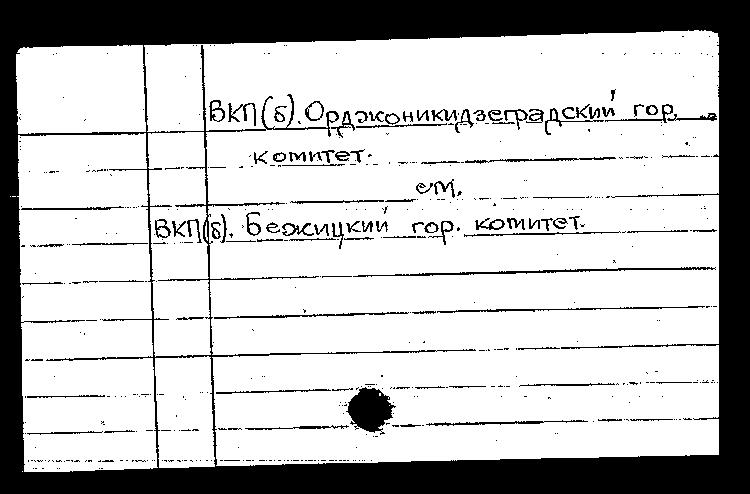 ВКП(б). Орджоникидзеградский гор.
комитет.
см.
ВКП(б). Бежицкий гор. комитет.